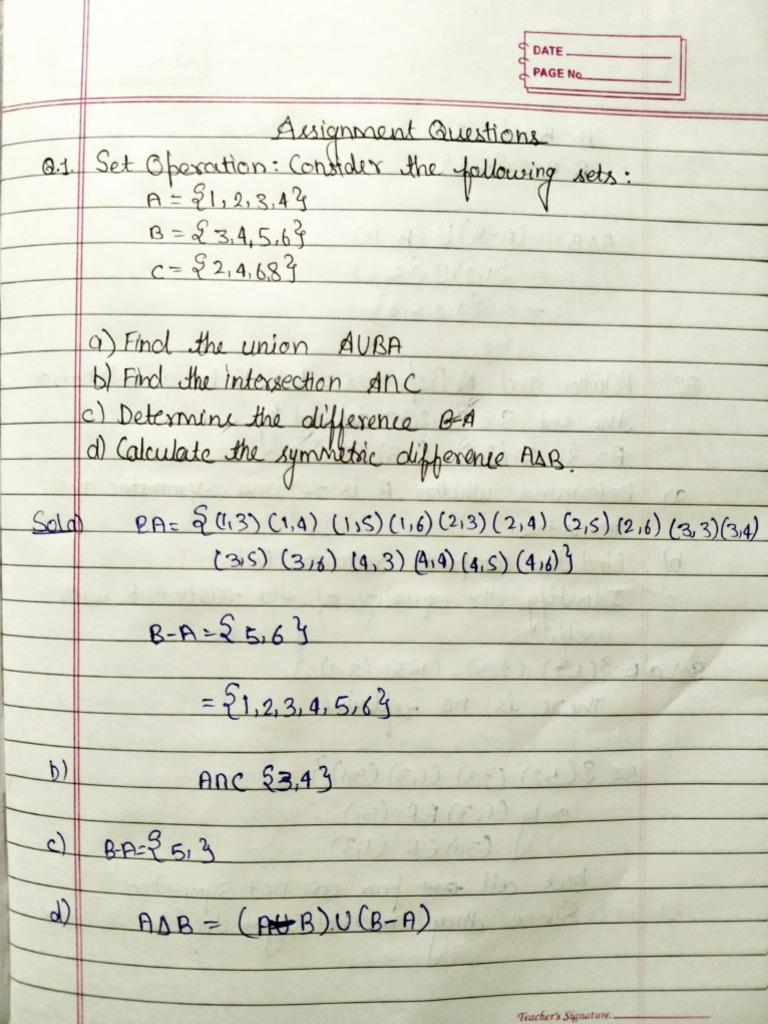 DATE
PAGE No.
Assignment Questions
Q.1. Set Operation: Consider the following sets:
A = {1, 2, 3, 4}
B = {3, 4, 5, 6}
C = {2, 4, 6 8}
a) Find the union AUBA
b) Find the intersection A∩C
c) Determine the difference B-A
d) Calculate the symmetric difference A∆B.
Sol a) RA = {(1,3) (1,4) (1,5) (1,6) (2,3) (2,4) (2,5) (2,6) (3,3) (3,4)
(3,5) (3,6) (4,3) (4,4) (4,5) (4,6)}
B-A = {5,6}
= {1,2,3,4,5,6}
b) A∩C {3,4}
c) B-A = {5, }
d) A∆B = (A B).U(B-A)
Teacher's Signature